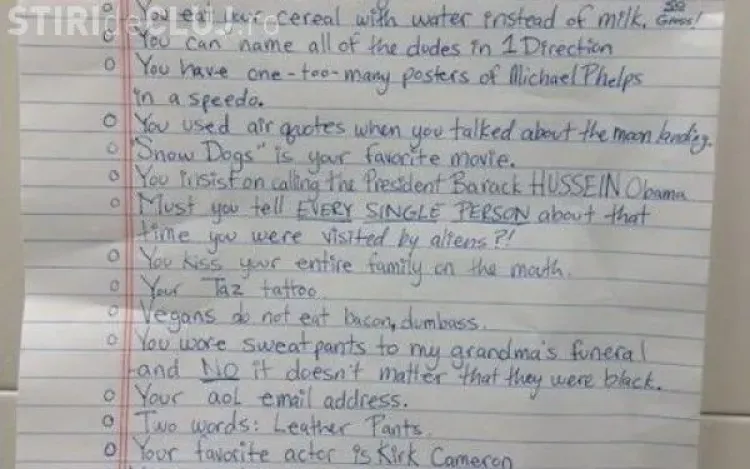 STIRIdeCLUJ.ro
You eat your cereal with water instead of milk. SO Gross!
You can name all of the dudes in 1 Direction
You have one-too-many posters of Michael Phelps
in a speedo.
You used air quotes when you talked about the moon landing.
"Snow Dogs" is your favorite movie.
You insist on calling the President Barack HUSSEIN Obama
Must you tell EVERY SINGLE PERSON about that
time you were visited by aliens?!
You kiss your entire family on the mouth.
Your Taz tattoo.
Vegans do not eat bacon, dumbass.
You wore sweatpants to my grandma's funeral
and NO it doesn't matter that they were black.
Your aol email address.
Two words: Leather Pants.
Your favorite actor is Kirk Cameron